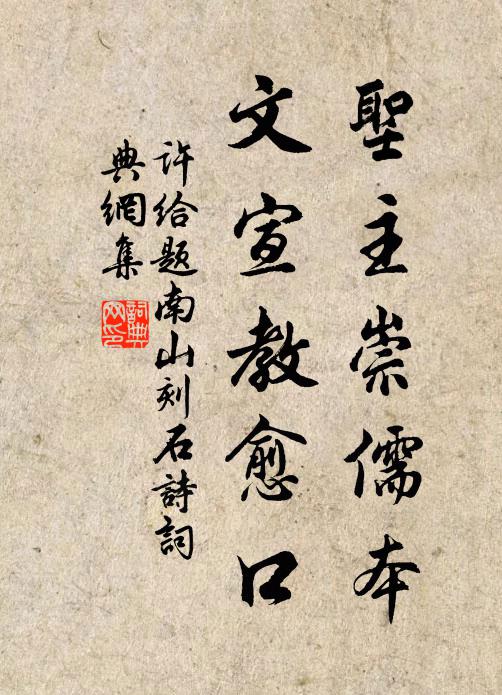 聖主崇儒本
文宣教愈口
許給題南山刻石詩詞
典網集
詞典
网印